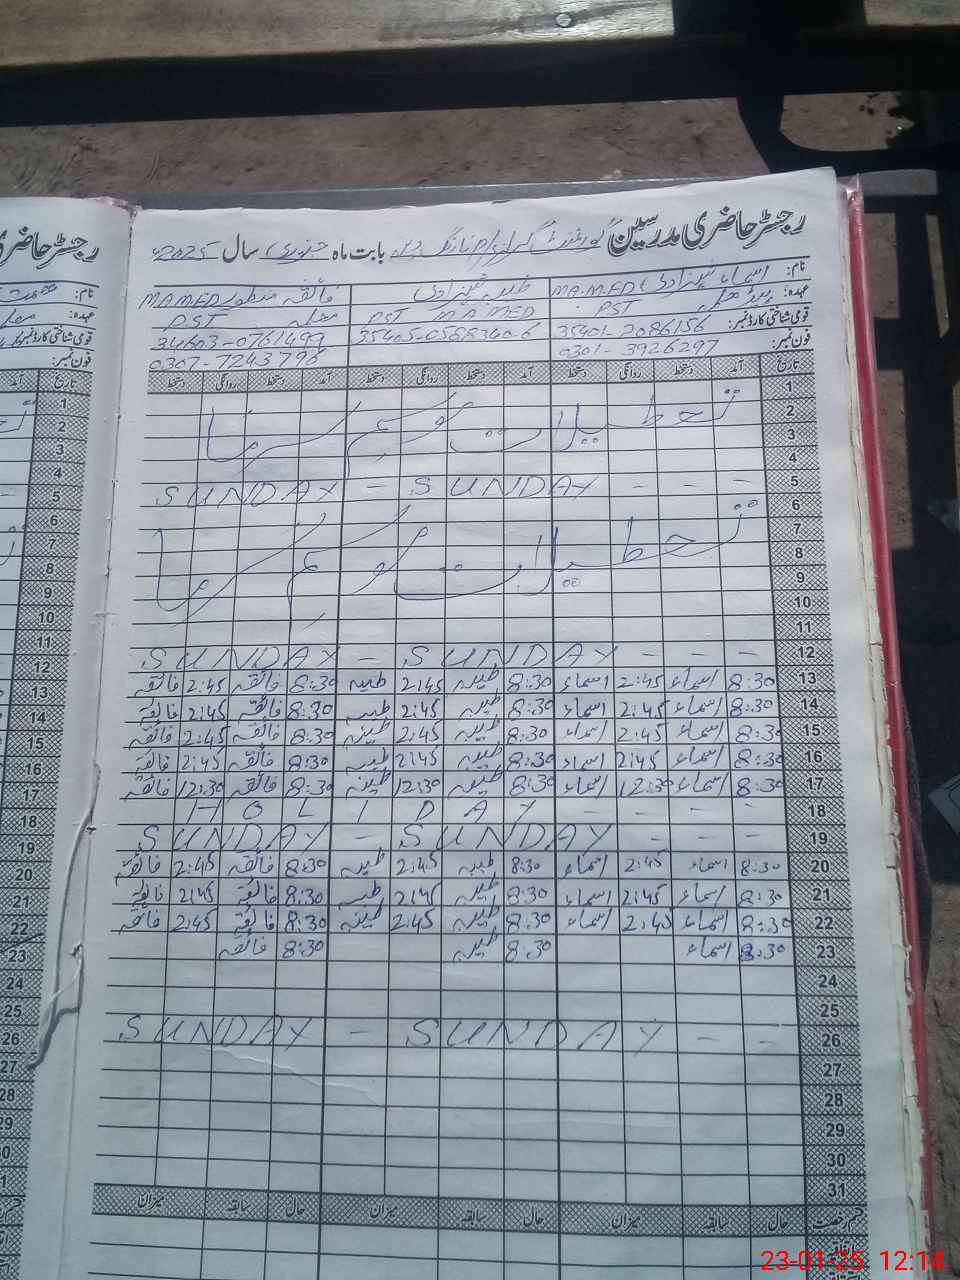 رجسٹر حاضری مدرسین گورنمنٹ گرلز بابت ماہ جنوری سال 2025ء
نام: اسماء شہزادی MA.M.ED طیبہ شہزادی فائقہ منظور MA.M.ED
عہدہ: PST PST M.A M.ED معلمہ PST
قومی شناختی کارڈ نمبر: 35401-2086156 34603-0761499
فون نمبر: 0301-3926297 0307-7243796
تاریخ آمد دستخط روانگی دستخط آمد دستخط روانگی دستخط آمد دستخط روانگی دستخط
1
2 تعطیلات موسم سرما
3
4
5 SUNDAY - SUNDAY - - -
6
7 تعطیلات موسم سرما
8
9
10
11
12 SUNDAY - SUNDAY - - -
13 8:30 اسماء 2:45 اسماء 8:30 طیبہ 2:45 طیبہ 8:30 فائقہ 2:45 فائقہ
14 8:30 اسماء 2:45 اسماء 8:30 طیبہ 2:45 طیبہ 8:30 فائقہ 2:45 فائقہ
15 8:30 اسماء 2:45 اسماء 8:30 طیبہ 2:45 طیبہ 8:30 فائقہ 2:45 فائقہ
16 8:30 اسماء 2:45 اسماء 8:30 طیبہ 2:45 طیبہ 8:30 فائقہ 2:45 فائقہ
17 8:30 اسماء 12:30 اسماء 8:30 طیبہ 12:30 طیبہ 8:30 فائقہ 12:30 فائقہ
18 HOLIDAY - - - -
19 SUNDAY - SUNDAY - - -
20 8:30 اسماء 2:45 اسماء 8:30 طیبہ 2:45 طیبہ 8:30 فائقہ 2:45 فائقہ
21 8:30 اسماء 2:45 اسماء 8:30 طیبہ 2:45 طیبہ 8:30 فائقہ 2:45 فائقہ
22 8:30 اسماء 2:45 اسماء 8:30 طیبہ 2:45 طیبہ 8:30 فائقہ 2:45 فائقہ
23 8:30 اسماء 8:30 طیبہ 8:30 فائقہ
24
25
26 SUNDAY - SUNDAY - -
27
28
29
30
31
قسم رخصت حال سابقہ میزان حال سابقہ میزان حال سابقہ میزان
23-01-25 12:14